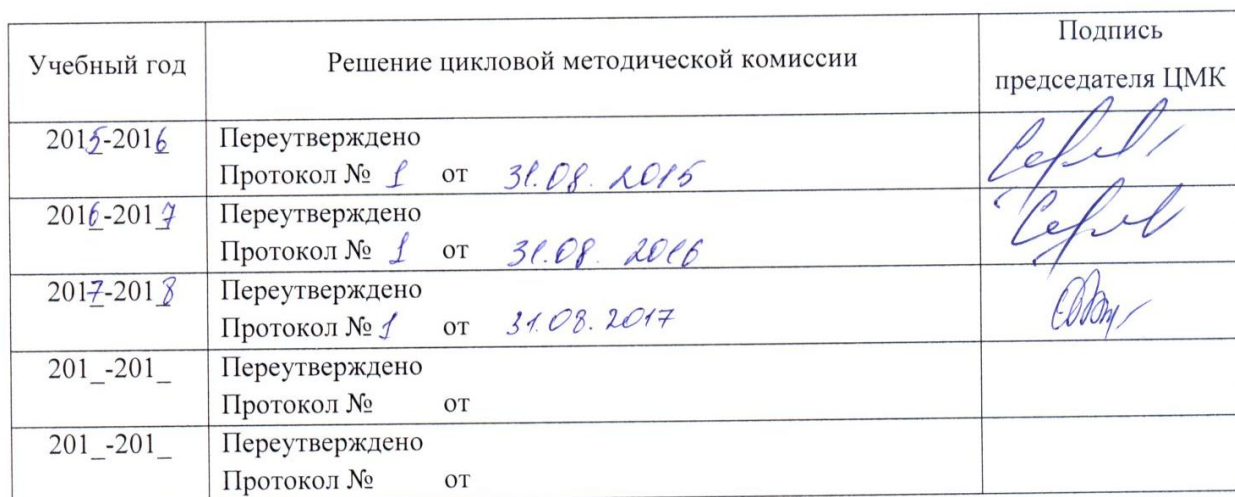 Учебный год Решение цикловой методической комиссии Подпись
председателя ЦМК
2015-2016 Переутверждено
Протокол № 1 от 31.08.2015
2016-2017 Переутверждено
Протокол № 1 от 31.08.2016
2017-2018 Переутверждено
Протокол № 1 от 31.08.2017
201_-201_ Переутверждено
Протокол № от
201_-201_ Переутверждено
Протокол № от